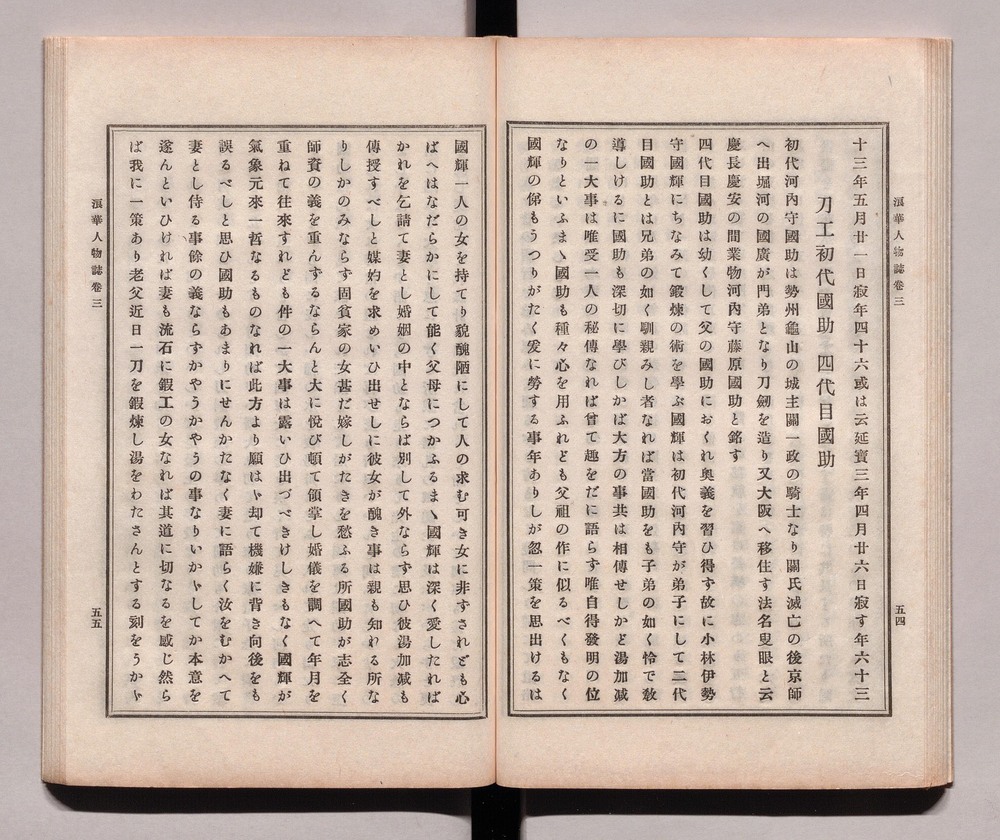 浪華人物誌卷三
五四
十三年五月廿一日寂年四十六或は云延寶三年四月廿六日寂す年六十三
刀工初代國助 四代目國助
初代河內守國助は勢州龜山の城主關一政の騎士なり關氏滅亡の後京師
へ出堀河の國廣が門弟となり刀劒を造り又大阪へ移住す法名叟眼と云
慶長慶安の間業物河內守藤原國助と銘す
四代目國助は幼くして父の國助におくれ奧義を習ひ得ず故に小林伊勢
守國輝にちなみて鍛煉の術を學ぶ國輝は初代河內守が弟子にして二代
目國助とは兄弟の如く馴親みし者なれば當國助をも子弟の如く怜で敎
導しけるに國助も深切に學びしかば大方の事共は相傳せしかど湯加減
の一大事は唯受一人の秘傳なれば曾て趣をだに語らず唯自得發明の位
なりといふまゝ國助も種々心を用ふれども父祖の作に似るべくもなく
國輝の俤もうつりがたく爰に勞する事年ありしが忽一策を思出けるは
國輝一人の女を持てり貌醜陋にして人の求む可き女に非ずされども心
ばへはなだらかにして能く父母につかふるまゝ國輝は深く愛したれば
かれを乞請て妻とし婚姻の中とならば別して外ならず思ひ彼湯加減も
傳授すべしと媒妁を求めいひ出せしに彼女が醜き事は親も知れる所な
りしかのみならず固貧家の女甚だ嫁しがたきを愁ふる所國助が志全く
師資の義を重んずるならんと大に悅び頓て領掌し婚儀を調へて年月を
重ねて往來すれども件の一大事は露いひ出づべきけしきもなく國輝が
氣象元來一哲なるものなれば此方より願はゞ却て機嫌に背き向後をも
誤るべしと思ひ國助もあまりにせんかたなく妻に語らく汝をむかへて
妻とし侍る事餘の義ならずかやうかやうの事なりいかゞしてか本意を
遂んといひければ妻も流石に鍜工の女なれば其道に切なるを感じ然ら
ば我に一策あり老父近日一刀を鍜煉し湯をわたさんとする刻をうかゞ
浪華人物誌卷三
五五